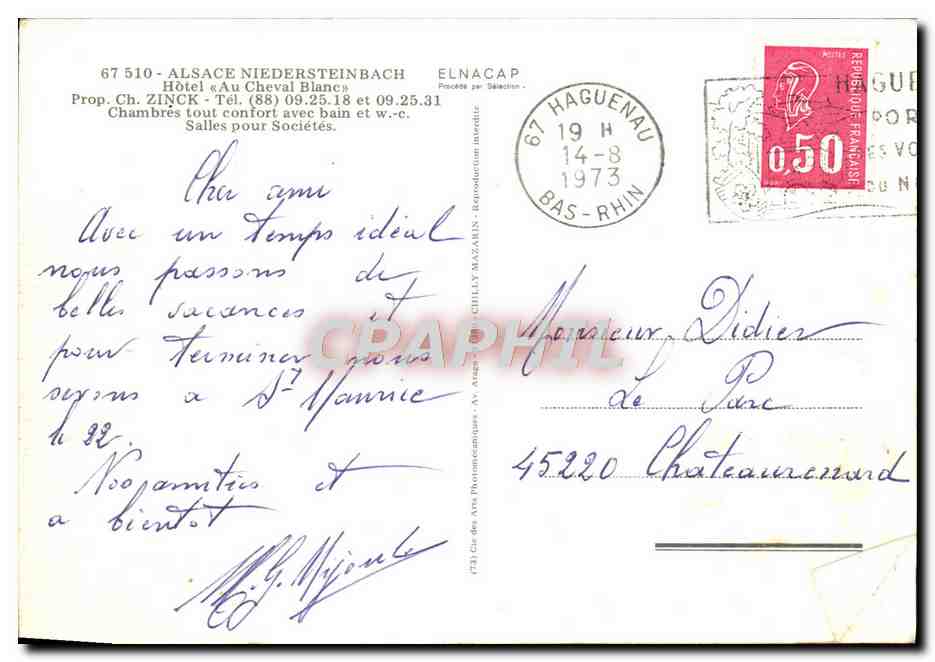 67 510 - ALSACE NIEDERSTEINBACH
Hôtel «Au Cheval Blanc»
Prop. Ch. ZINCK - Tél. (88) 09.25.18 et 09.25.31
Chambres tout confort avec bain et w.-c.
Salles pour Sociétés.
ELNACAP
Procédé par Sélection -
Cher ami
Avec un temps idéal
nous passons de
belles vacances et
pour terminer nous
serons a St Maurice
le 22.
Nos amitiés et
a bientôt
M. G.
(73) Cie des Arts Photomécaniques - Av. Arago - CHILLY MAZARIN - Reproduction interdite
67 HAGUENAU
19 H
14-8
1973
BAS-RHIN
POSTES
REPUBLIQUE FRANÇAISE
0,50
HAGUE
POR
ES VO
DU N
Monsieur Didier
Le Parc
45220 Chateaurenard
CPAPHIL